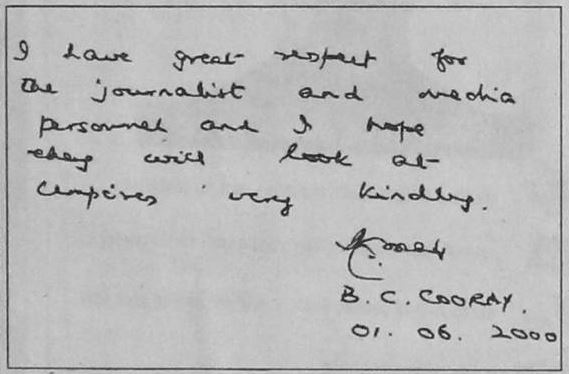 I have great respect for
the journalist and media
personnel and I hope
they will look at
umpires very kindly.
B. C. COORAY.
01. 06. 2000